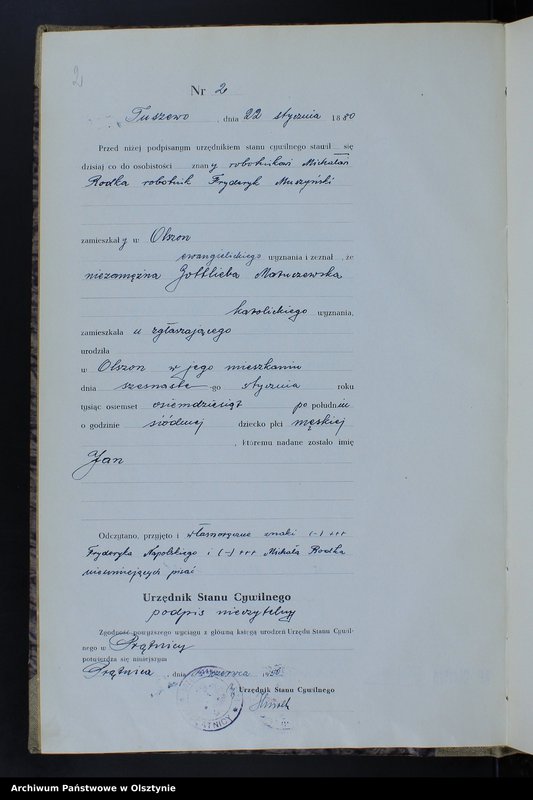 2
Nr 2
Tuszewo , dnia 22 stycznia 1880
Przed niżej podpisanym urzędnikiem stanu cywilnego stawił się
dzisiaj co do osobistości znany robotnikań Michałań
Rodka robotnik Fryderyk Muszyński
zamieszkały w Olszon
ewangielickiego wyznania i zeznał , że
niezamężna Gottlieba Matuszewska
katolickiego wyznania,
zamieszkała u zgłaszającego
urodziła
w Olszon w jego mieszkaniu
dnia szesnaste -go stycznia roku
tysiąc osiemset osiemdziesiąt po południu
o godzinie siódmej dziecko płci męskiej
, któremu nadane zostało imię
Jan
Odczytano, przyjęto i własnoręczne znaki (-) +++
Fryderyka Napolskiego i (-) +++ Michała Rodka
nieumiejących pisać
Urzędnik Stanu Cywilnego
podpis nieczytelny
Zgodność powyższego wyciągu z główną księgą urodzeń Urzędu Stanu Cywil-
nego w Prątnicy
potwierdza się niniejszym
Prątnica , dnia czerwca 1950
Urzędnik Stanu Cywilnego
Archiwum Państwowe w Olsztynie